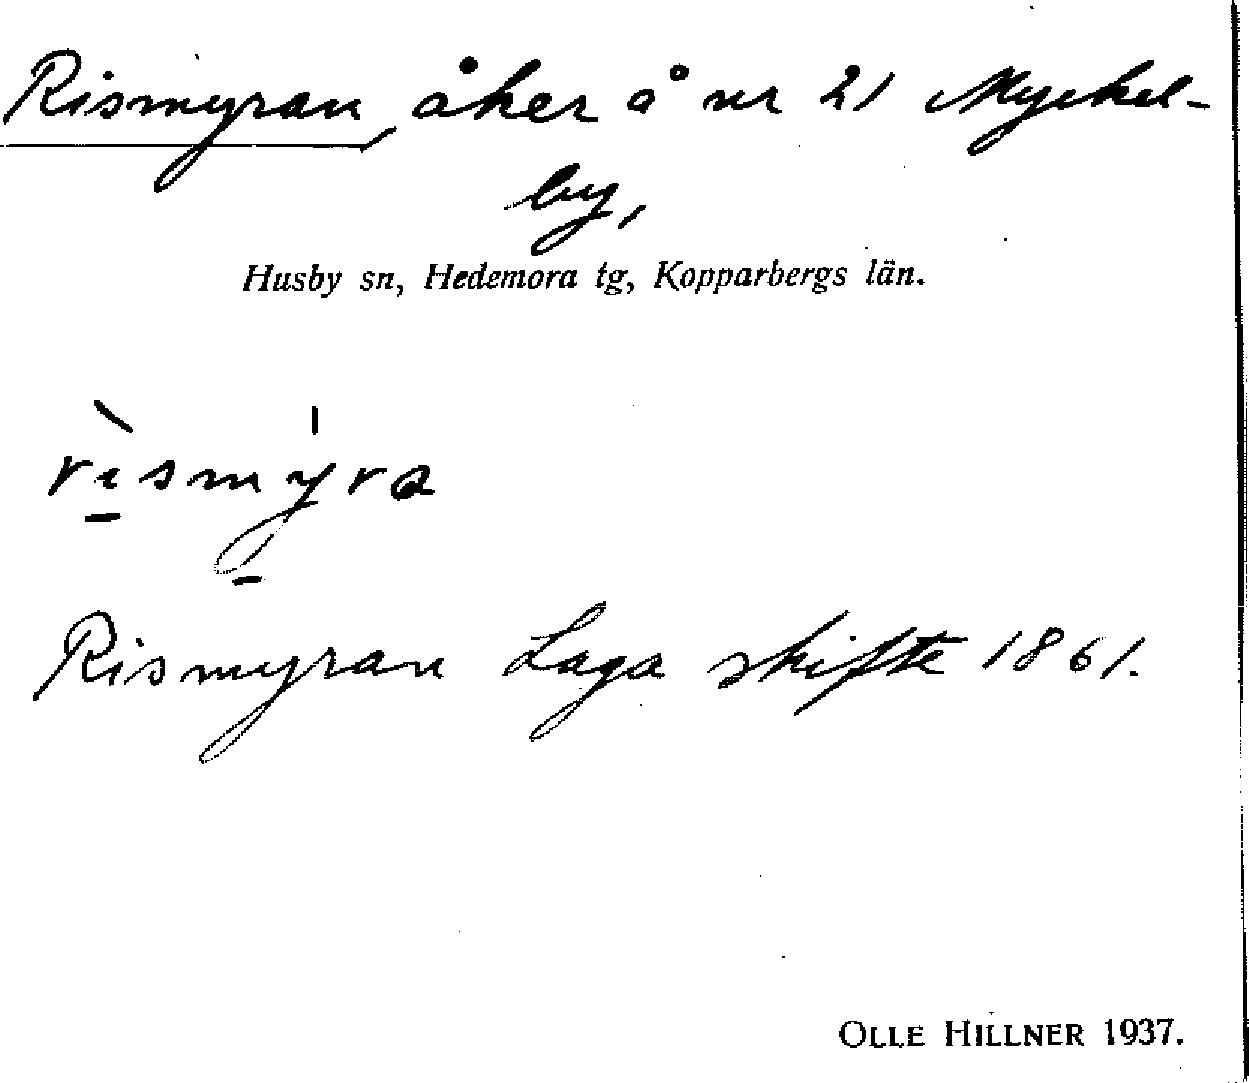 Rismyran, åker å nr 21 Myckel-
by,
Husby sn, Hedemora tg, Kopparbergs län.
rı̠̀smy̠̍ra
Rismyran Laga skifte 1861.
OLLE HILLNER 1937.